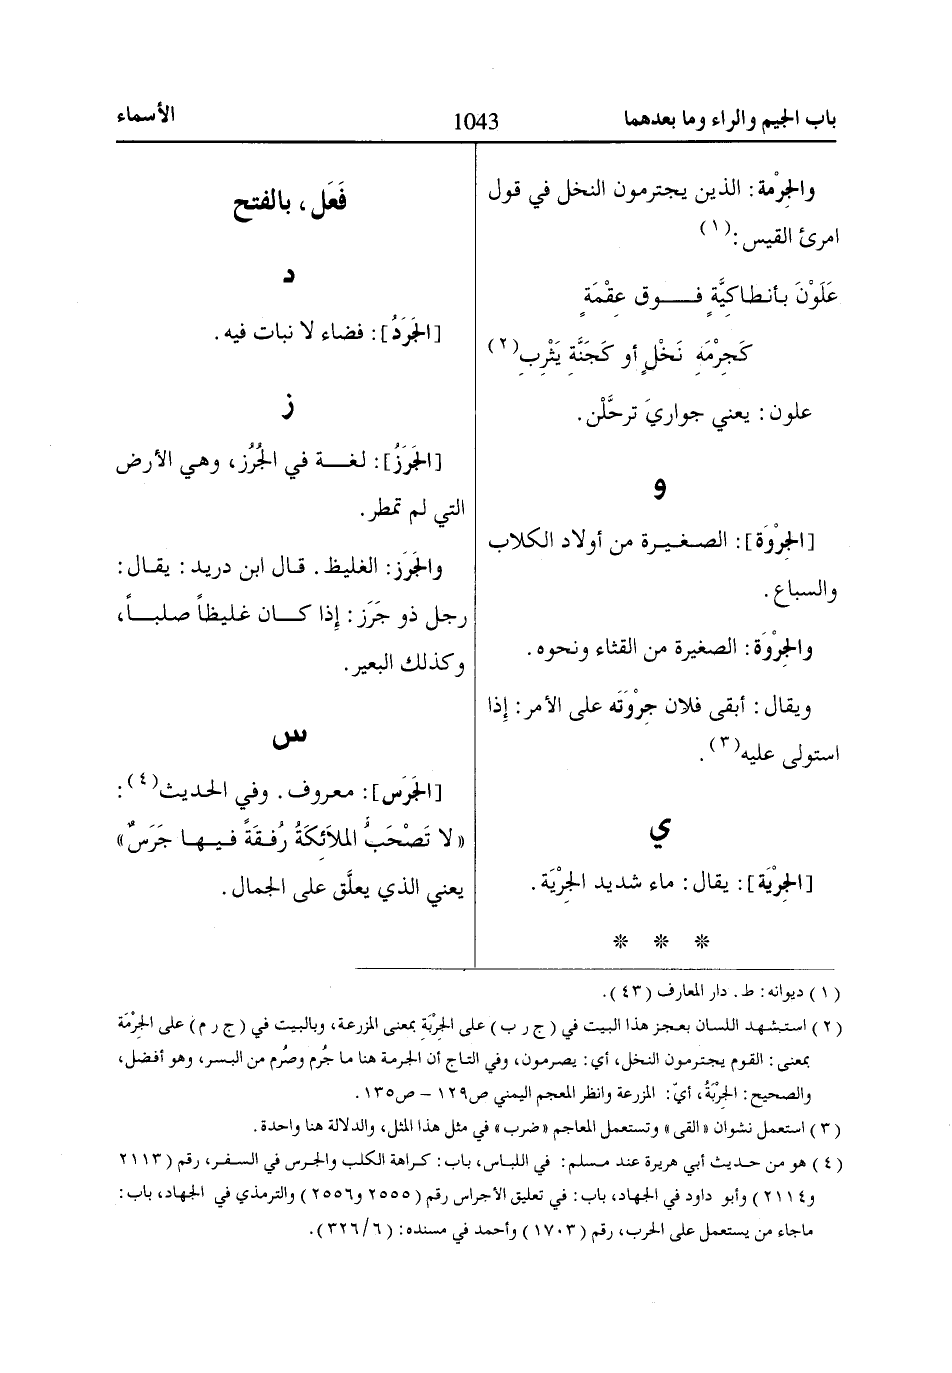 باب الجيم والراء وما بعدهما
1043
الأسماء
والجِرْمة: الذين يجترمون النخل في قول
امرئ القيس:(١)
عَلَوْنَ بأنطاكيَّةٍ فــوق عِقْمَةٍ
كَجِرْمَهِ نَخْلٍ أو كَجَنَّةِ يَثْرِبِ(٢)
علون: يعني جواريَ ترحَّلْن.
و
[الجِرْوَة]: الصغيرة من أولاد الكلاب
والسباع.
والجِرْوَة: الصغيرة من القثاء ونحوه.
ويقال: أبقى فلان جِرْوَتَه على الأمر: إِذا
استولى عليه(٣).
ي
[الجِرْيَة]: يقال: ماء شديد الجِرْيَة.
* * *
فَعَل، بالفتح
د
[الجَرَدُ]: فضاء لا نبات فيه.
ز
[الجَرَزُ]: لغــة في الجُرُز، وهي الأرض
التي لم تمطر.
والجَرَز: الغليظ. قال ابن دريد: يقال:
رجل ذو جَرَز: إِذا كــان غليظاً صلبــاً،
وكذلك البعير.
س
[الجَرَس]: معروف. وفي الحديث(٤):
«لا تَصْحَبُ الملاَئِكَةُ رُفـقَةً فـيـهـا جَرَسٌ»
يعني الذي يعلَّق على الجمال.
(١) ديوانه: ط. دار المعارف (٤٣).
(٢) استشهد اللسان بعجز هذا البيت في (ج ر ب) على الجِرْبَة بمعنى المزرعة، وبالبيت في (ج ر م) على الجِرْمَة
بمعنى: القوم يجترمون النخل، أي: يصرمون، وفي التاج أن الجرمة هنا ما جُرم وصُرم من البسر، وهو أفضل،
والصحيح: الجِرْبَةُ، أيّ: المزرعة وانظر المعجم اليمني ص١٢٩ – ص١٣٥.
(٣) استعمل نشوان «القى» وتستعمل المعاجم «ضرب» في مثل هذا المثل، والدلالة هنا واحدة.
(٤) هو من حديث أبي هريرة عند مسلم: في اللباس، باب: كراهة الكلب والجرس في السفر، رقم (٢١١٣
و٢١١٤) وأبو داود في الجهاد، باب: في تعليق الأجراس رقم (٢٥٥٥ و٢٥٥٦) والترمذي في الجهاد، باب:
ماجاء من يستعمل على الحرب، رقم (١٧٠٣) وأحمد في مسنده: (٣٢٦/٦).